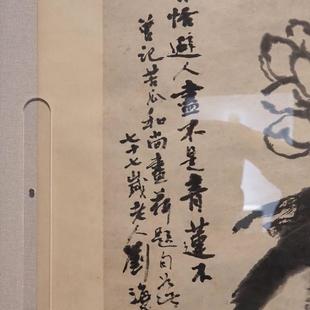 恬避人盡不是青蓮不
曾記苦瓜和尚畫荷題句如此
七十七歲老人劉海